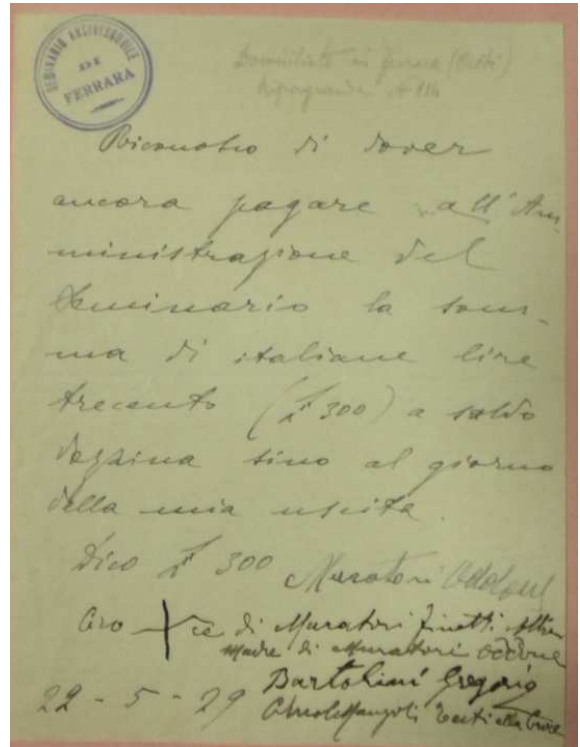 SEMINARIO ARCIVESCOVILE
DI
FERRARA
Domiciliato in Ferrara
Ripagrande N° 114
Riconosco di dover
ancora pagare all'Am-
ministrazione del
Seminario la som-
ma di italiane lire
trecento (£ 300) a saldo
dozzina sino al giorno
della mia uscita.
Dico £ 300 Muratori Oddone
Cro ce di Muratori Finetti
Madre di Muratori Oddone
22-5-29 Bartolini Gregorio
testi alla Croce